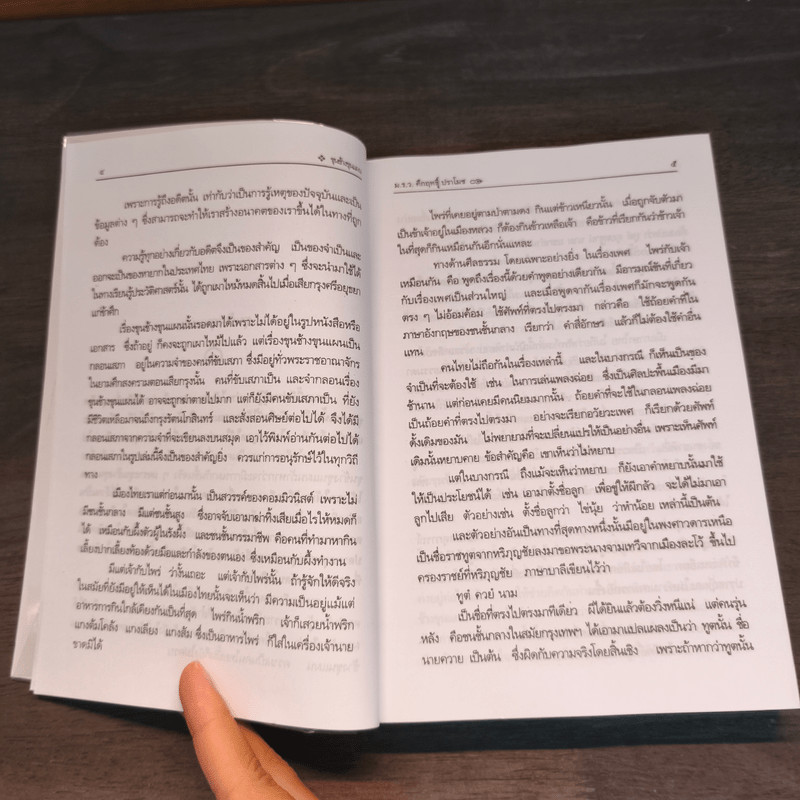 ๔ ❖ ขุนช้างขุนแผน
เพราะการรู้ถึงอดีตนั้น เท่ากับว่าเป็นการรู้เหตุของปัจจุบันและเป็น
ข้อมูลต่าง ๆ ซึ่งสามารถจะทำให้เราสร้างอนาคตของเราขึ้นได้ในทางที่ถูก
ต้อง
ความรู้ทุกอย่างเกี่ยวกับอดีตจึงเป็นของสำคัญ เป็นของจำเป็นและ
ออกจะเป็นของหายากในประเทศไทย เพราะเอกสารต่าง ๆ ซึ่งจะนำมาใช้ได้
ในทางเรียนรู้ประวัติศาสตร์นั้น ได้ถูกเผาไหม้หมดสิ้นไปเมื่อเสียกรุงศรีอยุธยา
แก่ข้าศึก
เรื่องขุนช้างขุนแผนนั้นรอดมาได้เพราะไม่ได้อยู่ในรูปหนังสือหรือ
เอกสาร ซึ่งถ้าอยู่ ก็คงจะถูกเผาไหม้ไปแล้ว แต่เรื่องขุนช้างขุนแผนเป็น
กลอนเสภา อยู่ในความจำของคนที่ขับเสภา ซึ่งมีอยู่ทั่วพระราชอาณาจักร
ในยามศึกสงครามตอนเสียกรุงนั้น คนที่ขับเสภาเป็น และจำกลอนเรื่อง
ขุนช้างขุนแผนได้ อาจจะถูกฆ่าตายไปมาก แต่ก็ยังมีคนขับเสภาเป็น ที่ยัง
มีชีวิตเหลือมาจนถึงกรุงรัตนโกสินทร์ และสั่งสอนศิษย์ต่อไปได้ จึงได้มี
กลอนเสภาจากความจำที่จะเขียนลงบนสมุด เอาไว้พิมพ์อ่านกันต่อไปได้
กลอนเสภาในรูปเล่มนี้จึงเป็นของสำคัญยิ่ง ควรแก่การอนุรักษ์ไว้ในทุกวิถี
ทาง
เมืองไทยเราแต่ก่อนมานั้น เป็นสวรรค์ของคอมมิวนิสต์ เพราะไม่
มีชนชั้นกลาง มีแต่ชนชั้นสูง ซึ่งอาจจับเอามาฆ่าทิ้งเสียเมื่อไรให้หมดก็
ได้ เหมือนกับผึ้งตัวผู้ในรังผึ้ง และชนชั้นกรรมาชีพ คือคนที่ทำมาหากิน
เลี้ยงปากเลี้ยงท้องด้วยมือและกำลังของตนเอง ซึ่งเหมือนกับผึ้งทำงาน
มีแต่เจ้ากับไพร่ ว่างั้นเถอะ แต่เจ้ากับไพร่นั้น ถ้ารู้จักให้ดีจริง
ในสมัยที่ยังมีอยู่ให้เห็นได้ในเมืองไทยนั้นจะเห็นว่า มีความเป็นอยู่แม้แต่
อาหารการกินใกล้เคียงกันเป็นที่สุด ไพร่กินน้ำพริก เจ้าก็เสวยน้ำพริก
แกงต้มโคล้ง แกงเลียง แกงส้ม ซึ่งเป็นอาหารไพร่ ก็ใส่ในเครื่องเจ้านาย
ขาดมิได้
ม.ร.ว. คึกฤทธิ์ ปราโมช ๕
ไพร่ที่เคยอยู่ตามป่าตามดง กินแต่ข้าวเหนียวนั้น เมื่อถูกจับตัวมา
เป็นข้าเจ้าอยู่ในเมืองหลวง ก็ต้องกินข้าวเหลือเจ้า คือข้าวที่เรียกกันว่าข้าวเจ้า
ในที่สุดก็กินเหมือนกันอีกนั่นแหละ
ทางด้านศีลธรรม โดยเฉพาะอย่างยิ่ง ในเรื่องเพศ ไพร่กับเจ้า
เหมือนกัน คือ พูดถึงเรื่องนี้ด้วยคำพูดอย่างเดียวกัน มีอารมณ์ขันที่เกี่ยว
กับเรื่องเพศเป็นส่วนใหญ่ และเมื่อพูดจากันเรื่องเพศก็มักจะพูดกัน
ตรง ๆ ไม่อ้อมค้อม ใช้ศัพท์ที่ตรงไปตรงมา กล่าวคือ ใช้ถ้อยคำที่ใน
ภาษาอังกฤษของชนชั้นกลาง เรียกว่า คำสี่อักษร แล้วก็ไม่ต้องใช้คำอื่น
แทน
คนไทยไม่ถือกันในเรื่องเหล่านี้ และในบางกรณี ก็เห็นเป็นของ
จำเป็นที่จะต้องใช้ เช่น ในการเล่นเพลงฉ่อย ซึ่งเป็นศิลปะพื้นเมืองมีมา
ช้านาน แต่ก่อนเคยมีคนนิยมมากนั้น ถ้อยคำที่จะใช้ในกลอนเพลงฉ่อย
เป็นถ้อยคำที่ตรงไปตรงมา อย่างจะเรียกอวัยวะเพศ ก็เรียกด้วยศัพท์
ดั้งเดิมของมัน ไม่พยายามที่จะเปลี่ยนแปรให้เป็นอย่างอื่น เพราะเห็นศัพท์
เดิมนั้นหยาบคาย ข้อสำคัญคือ เขาเห็นว่าไม่หยาบ
แต่ในบางกรณี ถึงแม้จะเห็นว่าหยาบ ก็ยังเอาคำหยาบนั้นมาใช้
ให้เป็นประโยชน์ได้ เช่น เอามาตั้งชื่อลูก เพื่อขู่ให้ผีกลัว จะได้ไม่มาเอา
ลูกไปเสีย ตัวอย่างเช่น ตั้งชื่อลูกว่า ไข่นุ้ย ว่าหำน้อย เหล่านี้เป็นต้น
และตัวอย่างอันเป็นทางที่สุดทางหนึ่งนั้นมีอยู่ในพงศาวดารเหนือ
เป็นชื่อราชทูตจากหริภุญชัยลงมาขอพระนางจามเทวีจากเมืองละโว้ ขึ้นไป
ครองราชย์ที่หริภุญชัย ภาษาบาลีเขียนไว้ว่า
ทูต์ ควย์ นาม
เป็นชื่อที่ตรงไปตรงมาทีเดียว มิได้ยินแล้วต้องวิ่งหนีแน่ แต่คนรุ่น
หลัง คือชนชั้นกลางในสมัยกรุงเทพฯ ได้เอามาแปลแผลงเป็นว่า ทูตนั้น ชื่อ
นายควาย เป็นต้น ซึ่งผิดกับความจริงโดยสิ้นเชิง เพราะถ้าหากว่าทูตนั้น